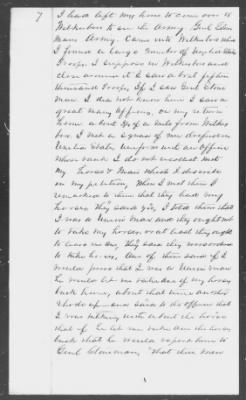 7 I had left my home to come over to
Wilkesboro to see the Army, Genl Stone
Mans Army. Came into Wilkesboro when
I found a large number of United States
Troops I suppose in Wilkesboro and
close around it I saw about fifteen
thousand Troops. If I saw Genl Stone
Man I did not know him I saw a
great many officers, on my return
home about half of a mile from Wilkes
boro I met a squad of men dressed in
United States uniform with an officer
whose rank I do not recollect with
my horses & Mare which I describe
in my petition, When I met them I
remarked to them that they had my
horses they said yes, I told them that
I was a Union man and they ought not
to take my horses or at least they ought
to leave me one, they said they were ordered
to take horses, One of them said if I
would prove that I was a Union man
he would let me take one of my horses
back home, about that time another
rode up and said to the officer that
I was talking with about the horses
that if he let me take the horses
back that he would report him to
Genl Stoneman, that there was